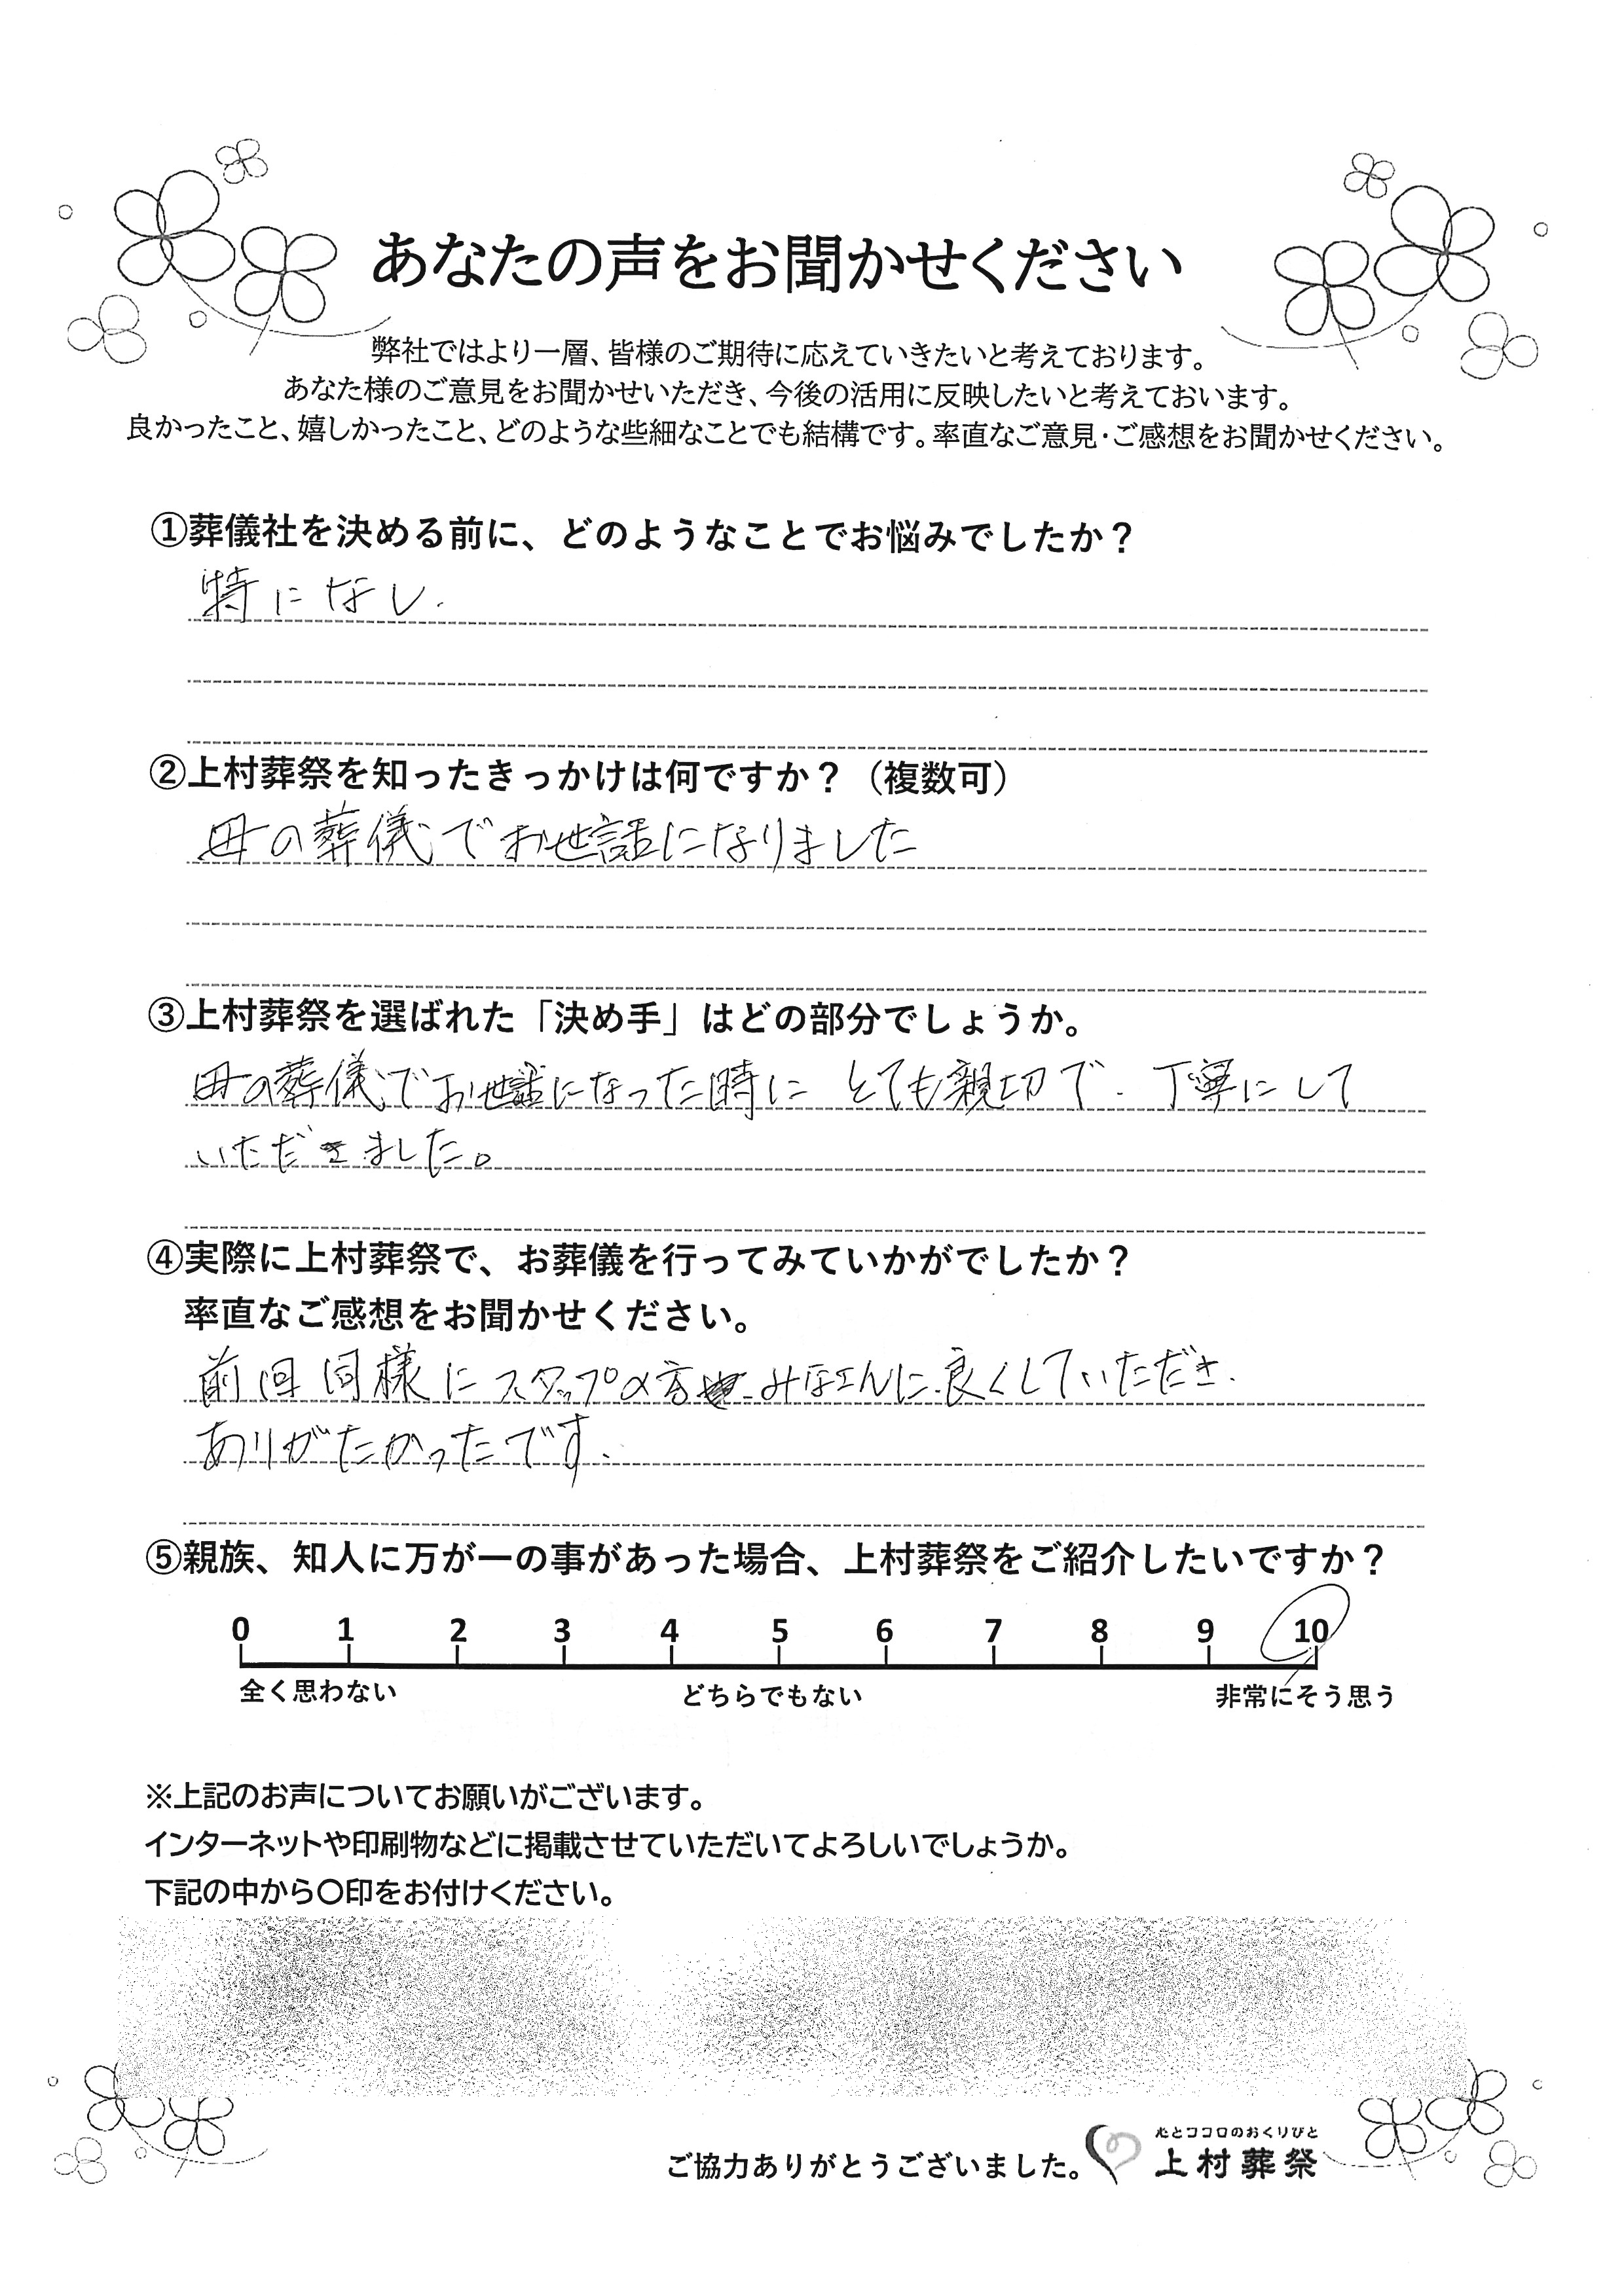 あなたの声をお聞かせください
弊社ではより一層、皆様のご期待に応えていきたいと考えております。
あなた様のご意見をお聞かせいただき、今後の活用に反映したいと考えておいます。
良かったこと、嬉しかったこと、どのような些細なことでも結構です。率直なご意見・ご感想をお聞かせください。
①葬儀社を決める前に、どのようなことでお悩みでしたか？
特になし.
②上村葬祭を知ったきっかけは何ですか？（複数可）
母の葬儀でお世話になりました
③上村葬祭を選ばれた「決め手」はどの部分でしょうか。
母の葬儀でお世話になった時に とても親切で. 丁寧にして
いただきました。
④実際に上村葬祭で、お葬儀を行ってみていかがでしたか？
率直なご感想をお聞かせください。
前回同様にスタップの方 みなさんに良くしていただき.
ありがたかったです.
⑤親族、知人に万が一の事があった場合、上村葬祭をご紹介したいですか？
0 1 2 3 4 5 6 7 8 9 10
全く思わない どちらでもない 非常にそう思う
※上記のお声についてお願いがございます。
インターネットや印刷物などに掲載させていただいてよろしいでしょうか。
下記の中から〇印をお付けください。
ご協力ありがとうございました。
心とココロのおくりびと
上村葬祭